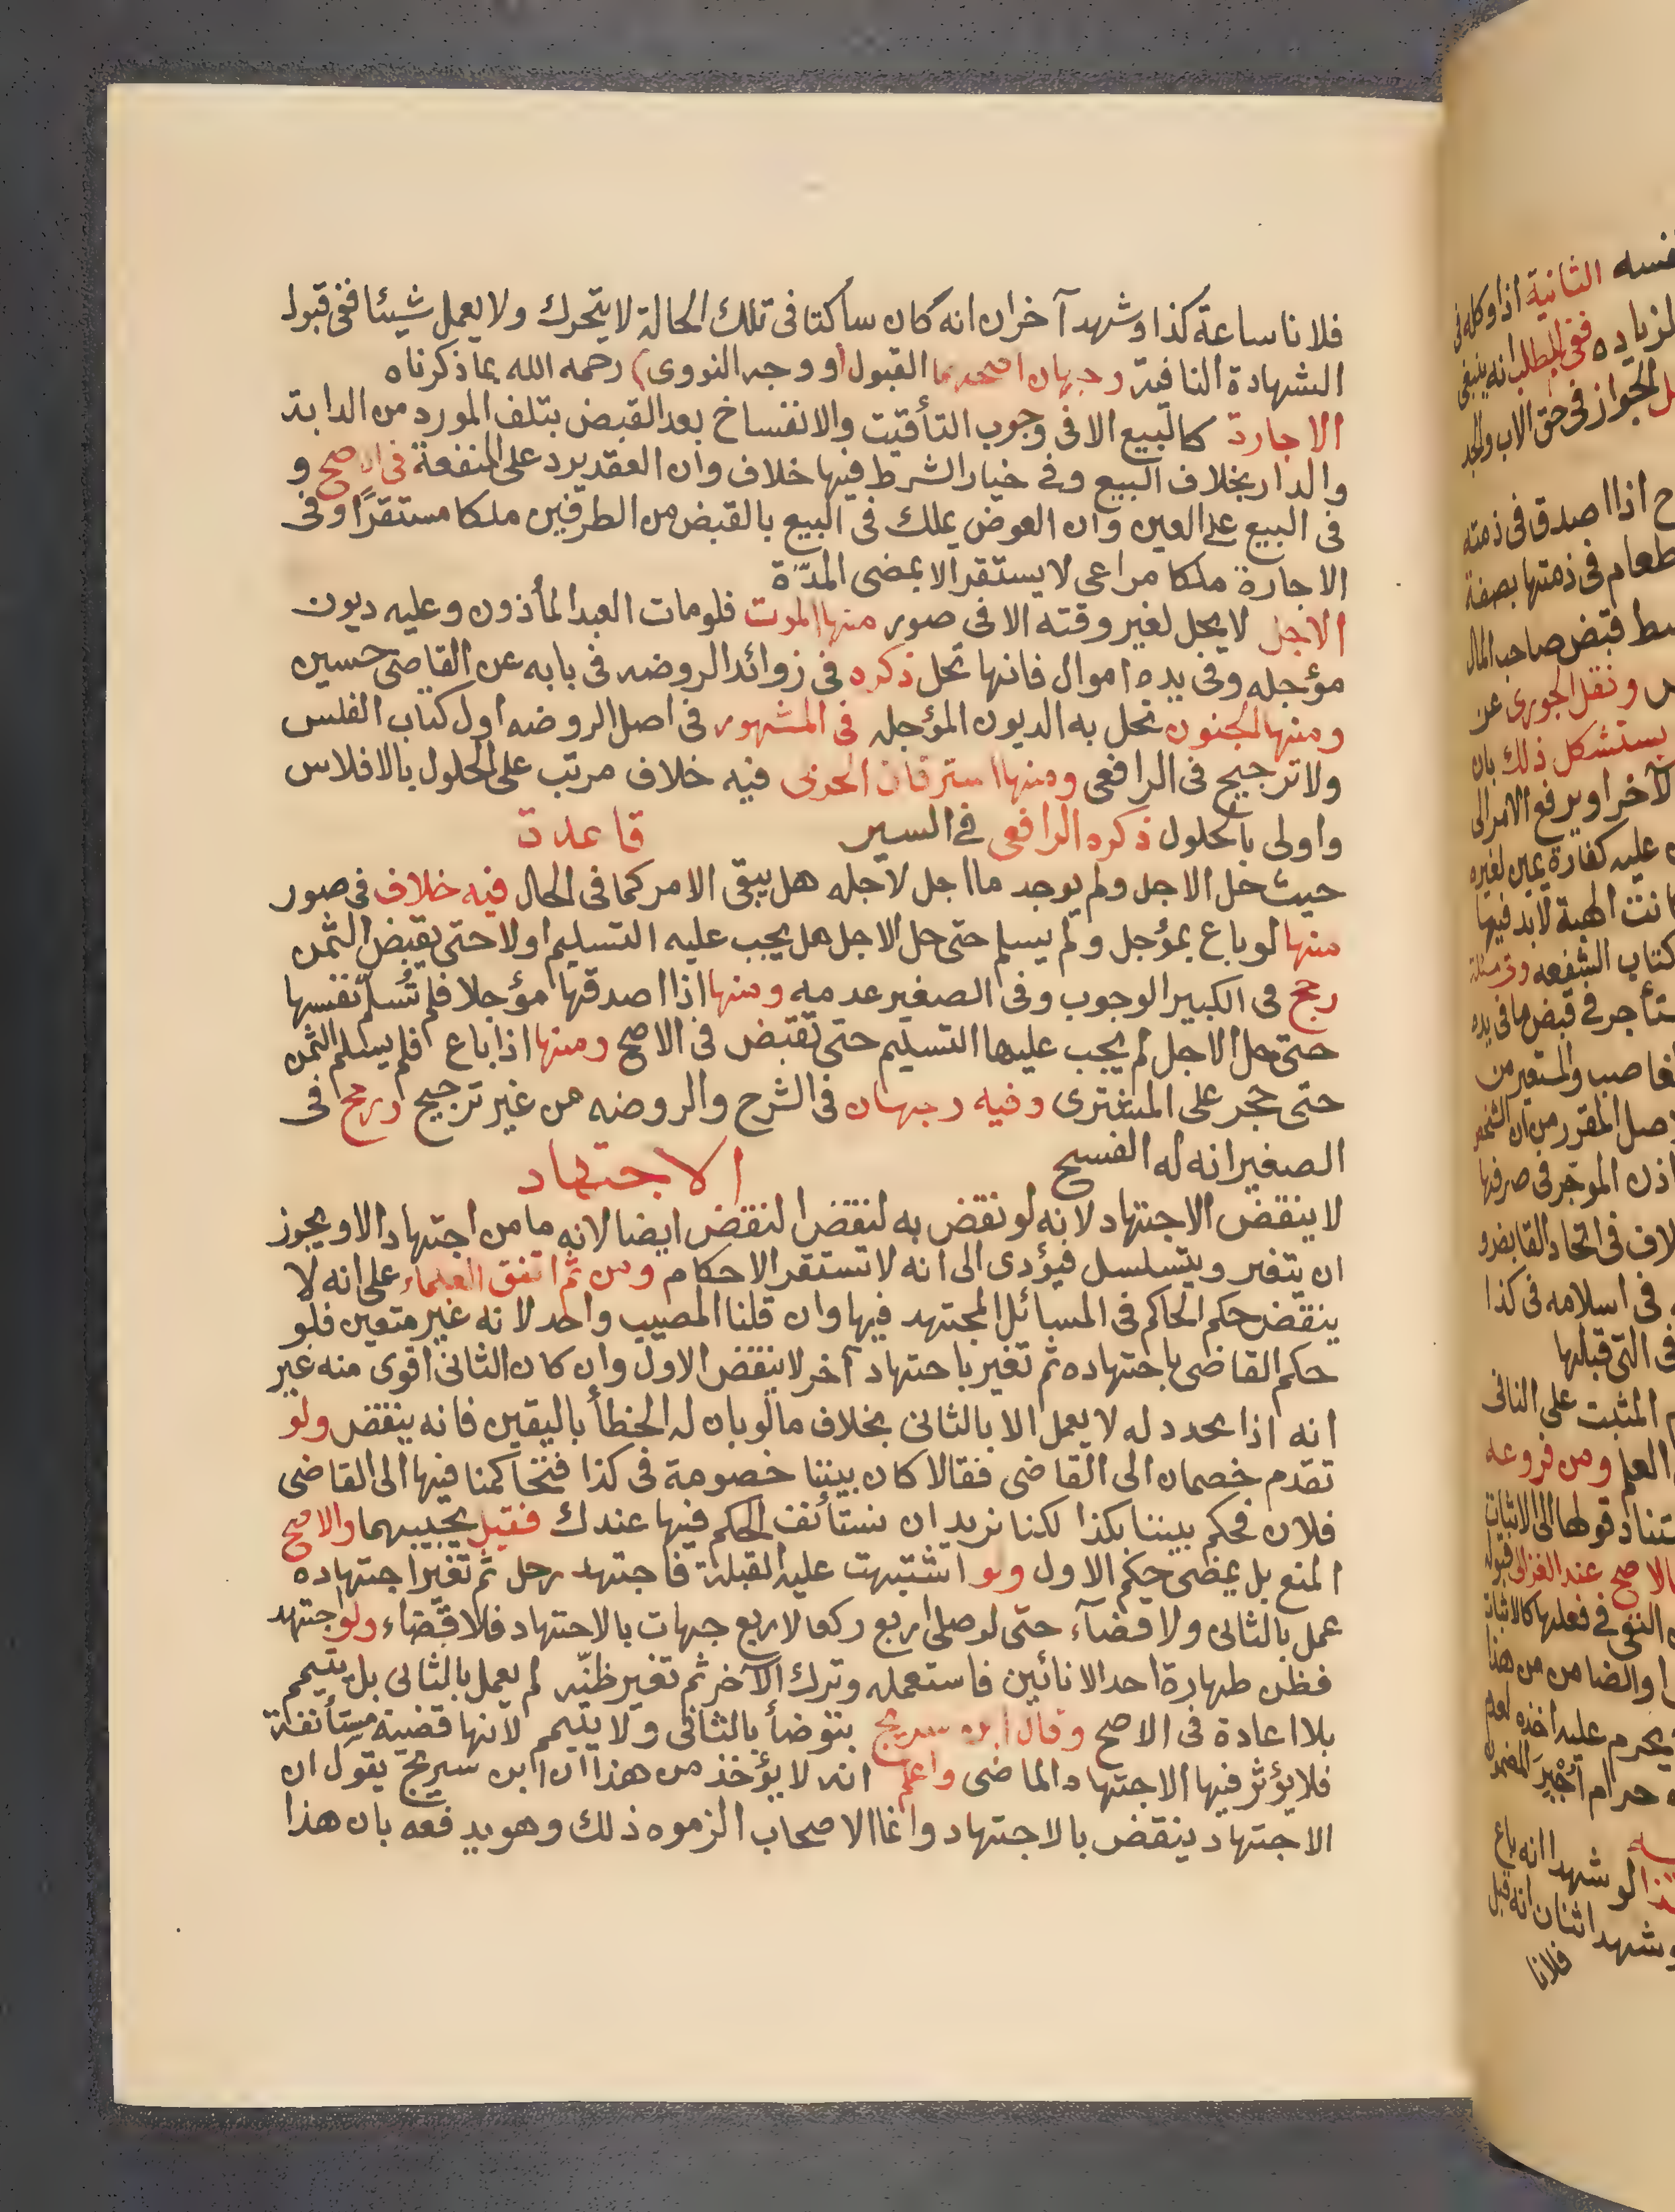 فلانا ساعة كذا وشهد آخران انه كان ساكتا فى تلك الحالة لا يتحرك ولا يعمل شيئا ففى قبول
الشهادة النافية وجهان اصحهما القبول (ووجه النووى) رحمه الله بما ذكرناه
الاجارة كالبيع الا فى وجوب التأقيت والانفساخ بعد القبض بتلف المورد من الدابة
والدار بخلاف البيع وفى خيار الشرط فيها خلاف وان العقد يرد على المنفعة فى الاصح و
فى البيع على العين وان العوض يملك فى البيع بالقبض من الطرفين ملكا مستقرًا وفى
الاجارة ملكا مراعى لا يستقر الا بمضى المدّة
الاجل لا يحل لغير وقته الا فى صور منها الموت فلو مات العبد المأذون وعليه ديون
مؤجله وفى يده اموال فانها تحل ذكره فى زوائد الروضه فى بابه عن القاضى حسين
ومنها الجنون تحل به الديون المؤجله فى المشهور فى اصل الروضه اول كتاب الفلس
ولا ترجيح فى الرافعى ومنها استرقاق الحربى فيه خلاف مرتب على الحلول بالافلاس
واولى بالحلول ذكره الرافعى فى السير قاعدة
حيث حل الاجل ولم يوجد ما اجل لاجله هل يبقى الامر كما فى الحال فيه خلاف فى صور
منها لو باع بمؤجل ولم يسلم حتى حل الاجل هل يجب عليه التسليم اولا حتى يقبض الثمن
رجح فى الكبير الوجوب وفى الصغير عدمه ومنها اذا اصدقها مؤجلا فلم تُسلّم نفسها
حتى حل الاجل لم يجب عليها التسليم حتى تقبض فى الاصح ومنها اذا باع فلم يسلم الثمن
حتى حجر على المشترى وفيه وجهان فى الشرح والروضه من غير ترجيح ورجح فى
الصغير انه له الفسخ الاجتهاد
لا ينقض الاجتهاد لانه لو نقض به لنقض النقض ايضا لانه ما من اجتهاد الا ويجوز
ان يتغير ويتسلسل فيؤدى الى انه لا تستقر الاحكام ومن ثم اتفق العلماء على انه لا
ينقض حكم الحاكم فى المسائل المجتهد فيها وان قلنا المصيب واحد لانه غير متعين فلو
حكم القاضى باجتهاده ثم تغير باجتهاد آخر لا ينقض الاول وان كان الثانى اقوى منه غير
انه اذا يحدد له لا يعمل الا بالثانى بخلاف ما لو بان له الخطأ باليقين فانه ينقض ولو
تقدم خصمان الى القاضى فقالا كان بيننا خصومة فى كذا فتحاكمنا فيها الى القاضى
فلان فحكم بيننا بكذا لكنا نريد ان نستأنف الحكم فيها عندك فقيل يجيبهما والاصح
المنع بل يمضى حكم الاول ولو اشتبهت عليه القبلة فاجتهد رجل ثم تغير اجتهاده
عمل بالثانى ولا قضآء حتى لو صلى اربع ركعا لاربع جهات بالاجتهاد فلا قضاء ولو اجتهد
فظن طهارة احد الانائين فاستعمله وترك الآخر ثم تغير ظنّه لم يعمل بالثانى بل يتيمم
بلا اعادة فى الاصح وقال ابن سريج يتوضأ بالثانى ولا يتيمم لانها قضية مستأنفة
فلا يؤثر فيها الاجتهاد الماضى واعلم انه لا يؤخذ من هذا ان ابن سريج يقول ان
الاجتهاد ينقض بالاجتهاد وانما الاصحاب الزموه ذلك وهو يدفعه بان هذا